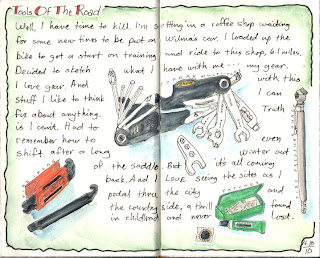 Tools Of The Road
Well, I have time to kill. I'm sitting in a coffee shop waiting
for some new tires to be put on Wilma's car. I loaded up the
bike to get a start on training and ride to this shop, 61 miles.
Decided to sketch what I have with me my gear.
I love gear. And with this
stuff I like to think I can
fix about anything. Truth
is I can't. Had to even
remember how to winter out
shift after a long
of the saddle. But it's all coming
back. And I Love seeing the sites as I
pedal thru the city and
the country side, a thrill found
in childhood and never lost.
PATCHES
10